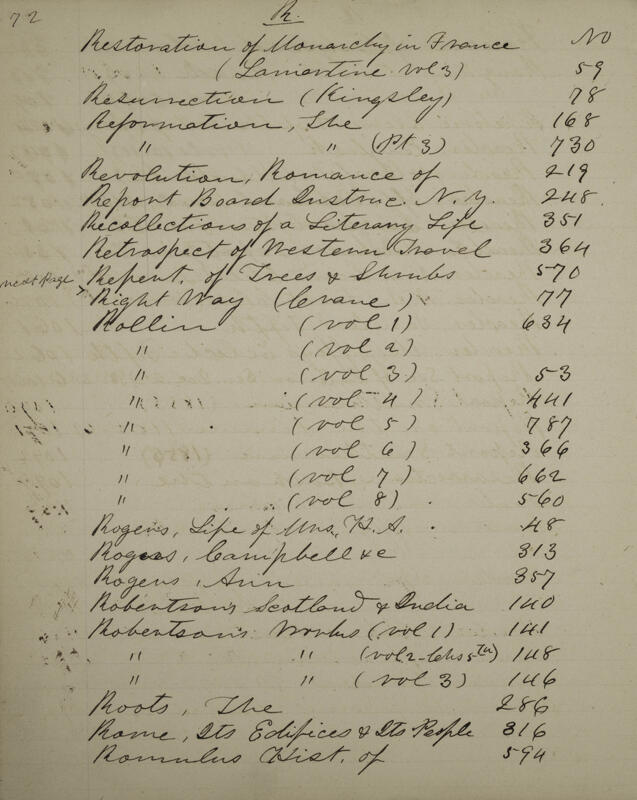 72
R.
Restoration of Monarchy in France No
(Lamartine vol 3) 59
Resurrection (Kingsley) 78
Reformation, The 168
" " (Pt 3) 730
Revolution, Romance of 219
Report Board Instruc. N.Y. 248
Recollections of a Literary Life 351
Retrospect of Western Travel 364
next Page Report. of Trees & Shrubs 570
Right Way (Crane) 77
Rollin (vol 1) 634
" (vol 2)
" (vol 3) 53
" (vol 4) 441
" (vol 5) 787
" (vol 6) 366
" (vol 7) 662
" (vol 8) 560
Rogers, Life of Mrs. H.A. 48
Rogers, Campbell &c 313
Rogers, Ann 357
Robertsons Scotland & India 140
Robertsons Works (vol 1) 141
" " (vol 2 - Chs 5th) 148
" " (vol 3) 146
Roots, The 286
Rome, Its Edifices & Its People 316
Romulus Hist. of 594